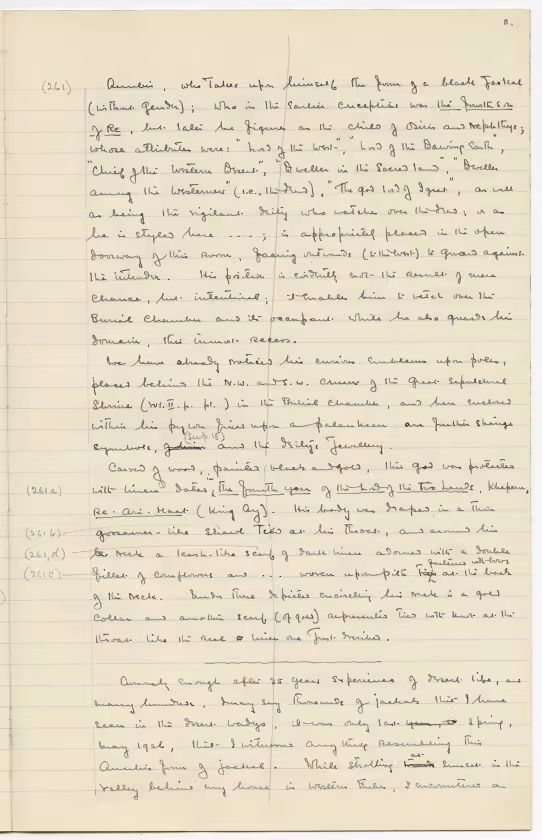 11.
(261) Anubis, who takes upon himself the form of a black Jackal
(without gender); who in the earlier conception was the fourth son
of Re, but later he figures as the child of Osiris and Nephthys;
whose attributes were: "Lord of the West", "Lord of the Dawning Earth",
"Chief of the Western Desert", "Dweller in the Sacred land", "Dweller
among the Westerners" (i.e., the dead), "The god lord of", as well
as being the vigilant deity who watches over the dead; or as
he is styled here ....; is appropriately placed in the open
doorway of this Room, facing outwards (to the West) to guard against
the intruder. His position is evidently not the result of mere
chance, but intentional; it enables him to watch over the
Burial Chamber and its occupant while he also guards his
domain, this inmost recess.
We have already noticed his curious emblems upon poles,
placed behind the N.W. and S.W. corners of the Great Sepulchral
Shrine (Vol. II. p. pl. ) in the Burial Chamber, and here enclosed
within his pylon poised upon a palankeen are further strange
symbols, (See p. 15) and the deity's Jewellery.
Carved of wood, painted black and gold, this god was protected
(261 a) with linen dated, "in the fourth year of the lord of the two lands, Kheperu,
Re. Ari. Maat (King Ay). His body was draped in a thin
(261 b) gossamer-like shawl tied at his throat, and around his
(261, d) neck a leash-like scarf of dark linen adorned with a double
(261 c) fillet of cornflowers and ... woven upon pith fastened with bows at the back
of the neck. Under these depicted encircling his neck is a gold
collar and another scarf (of gold) represented tied with knot at the
throat like the real linen one just described.
Curiously enough after 35 years experience of desert life, and
many hundreds, I may say thousands of jackals that I have
seen in the desert wadys, it was only last year, Spring,
May 1926, that I witnessed anything resembling this
Anubis form of jackal. While strolling at sunset in the
valley behind my house in Western Thebes, I encountered a